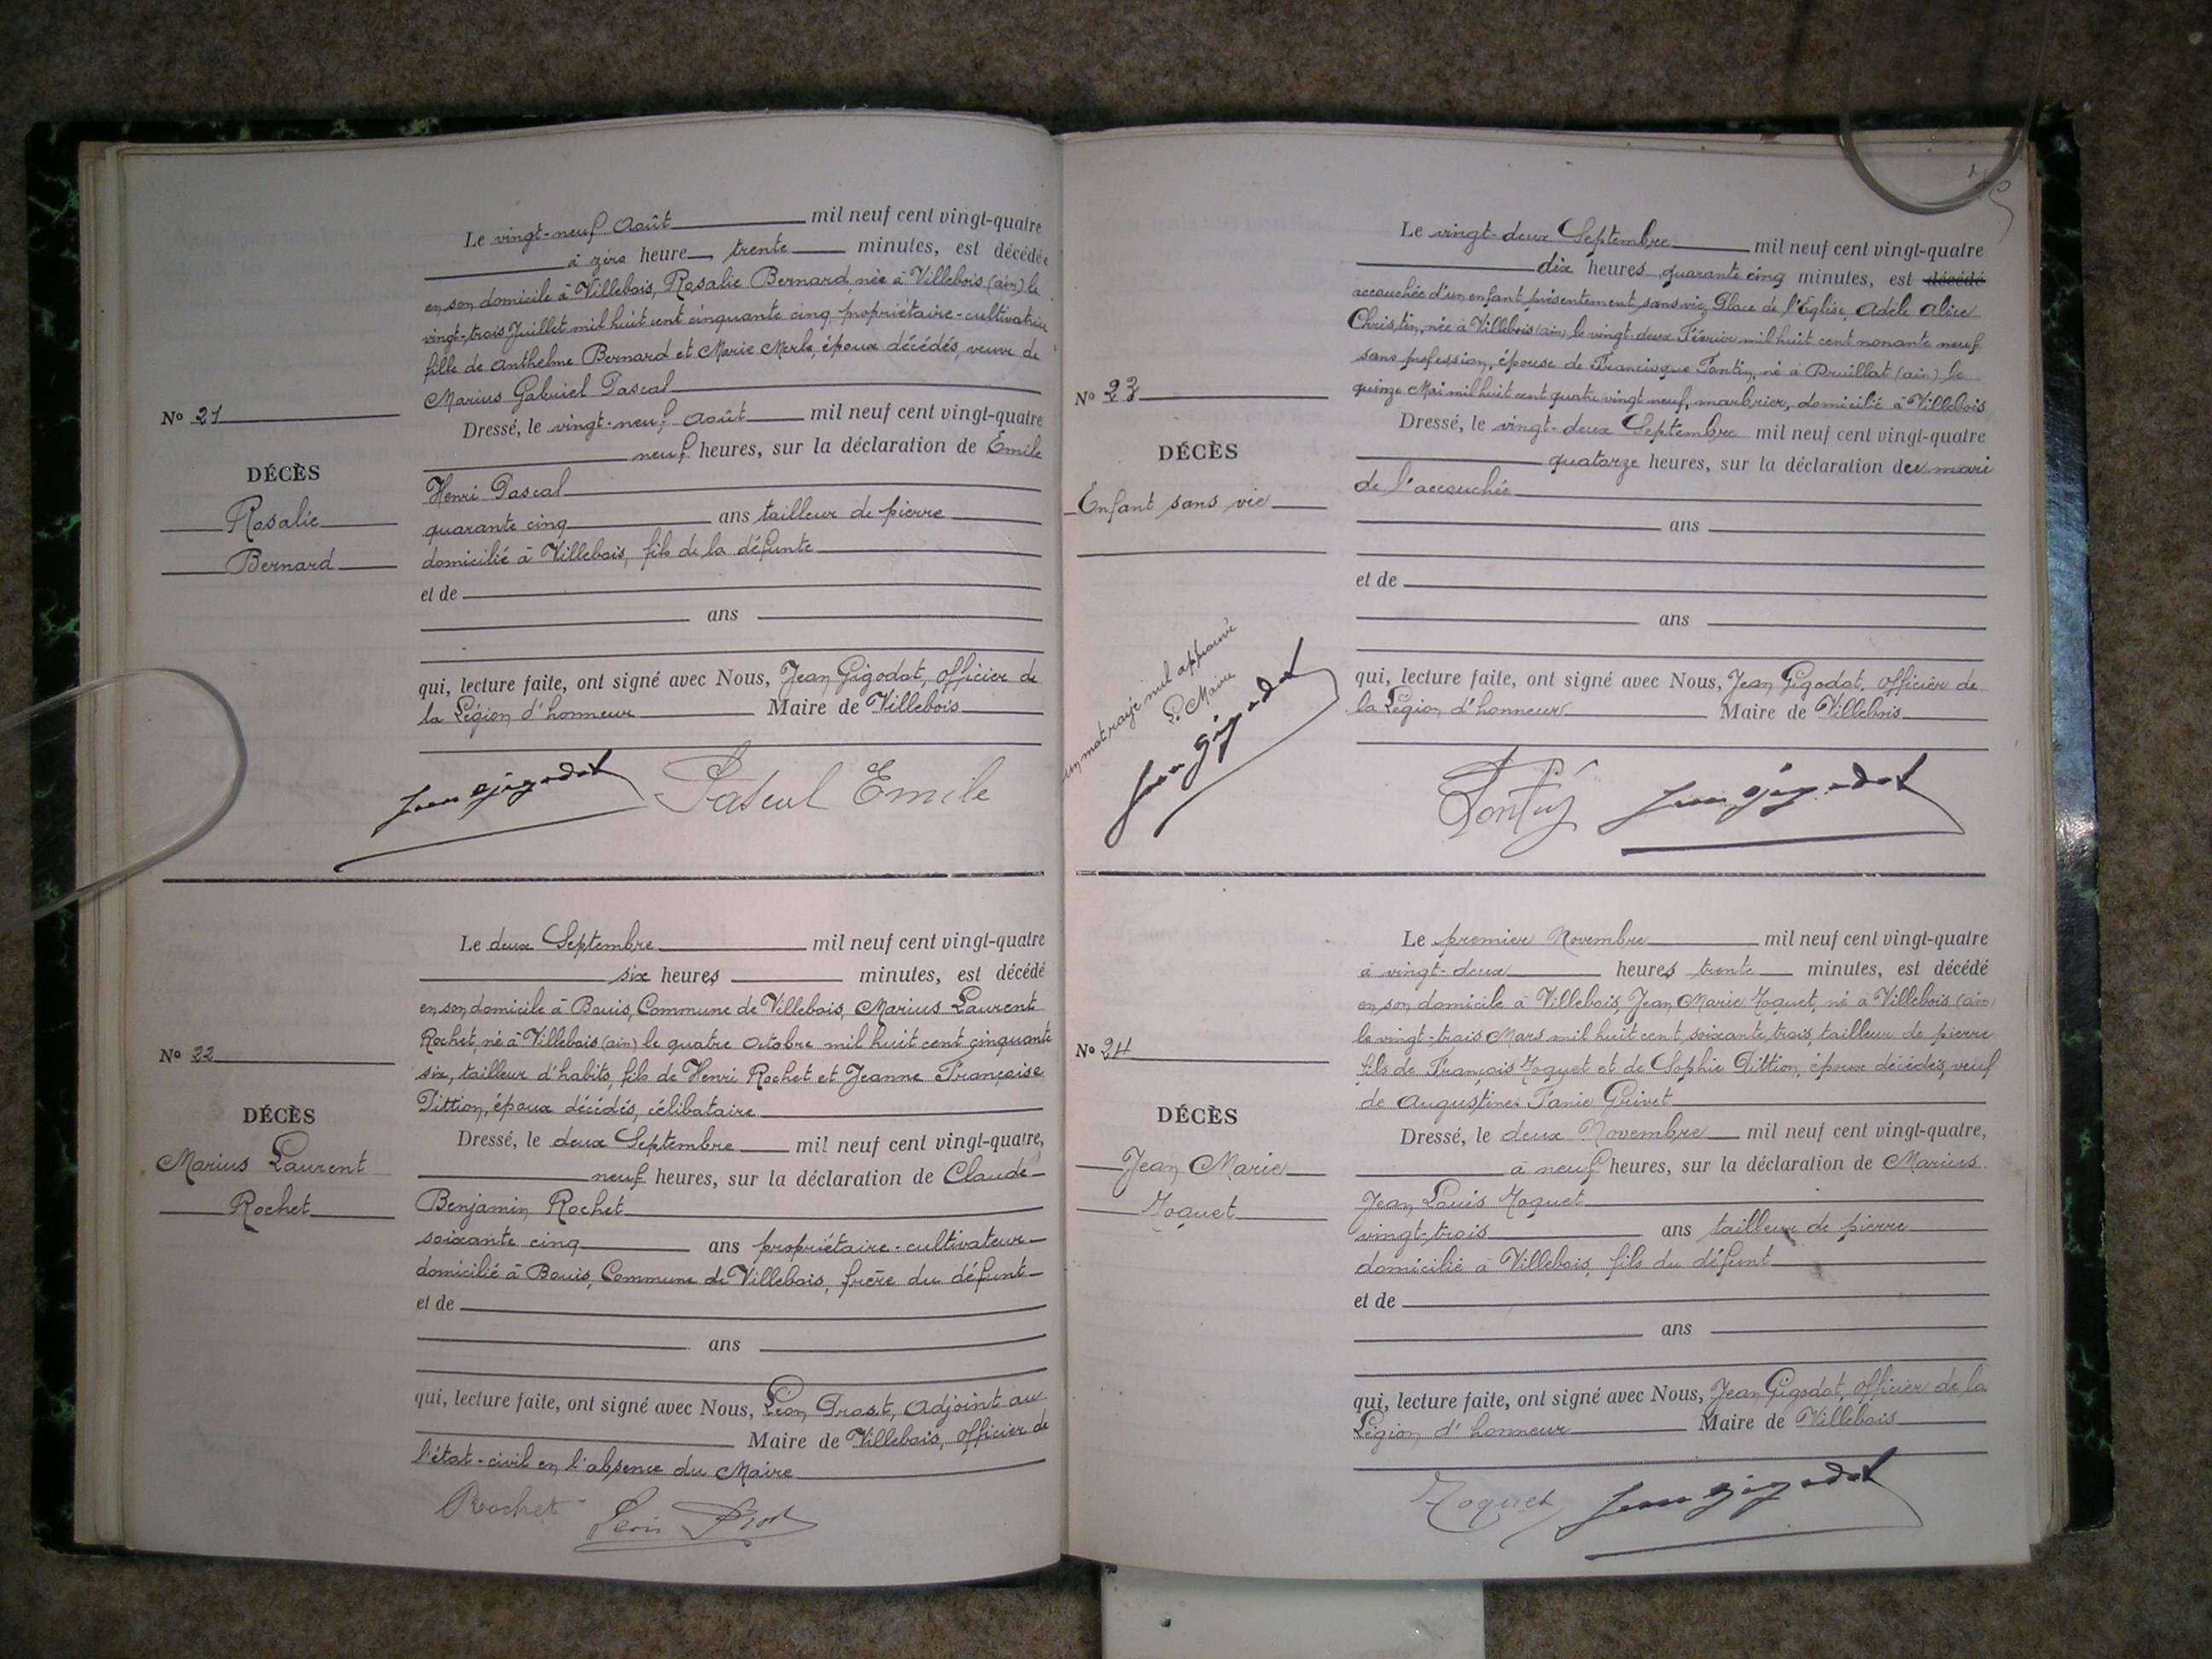 Le vingt-neuf Août mil neuf cent vingt-quatre
à zéro heure, trente minutes, est décédée
en son domicile à Villebois, Rosalie Bernard, née à Villebois (ain) le
vingt-trois Juillet mil huit cent cinquante cinq, propriétaire-cultivatrice
fille de Anthelme Bernard et Marie Merle, époux décédés, veuve de
Marius Gabriel Pascal
Nº 21
Dressé, le vingt-neuf Août mil neuf cent vingt-quatre
neuf heures, sur la déclaration de Emile
DÉCÈS
Henri Pascal
Rosalie
quarante cinq ans tailleur de pierre
Bernard
domicilié à Villebois, fils de la défunte
et de
ans
qui, lecture faite, ont signé avec Nous, Jean Gigodot, officier de
la Légion d'honneur Maire de Villebois
Jean Gigodot Pascal Emile
Le deux Septembre mil neuf cent vingt-quatre
six heures minutes, est décédé
en son domicile à Bouis, Commune de Villebois, Marius Laurent
Rochet, né à Villebois (ain) le quatre Octobre mil huit cent cinquante
Nº 22
six, tailleur d'habits, fils de Henri Rochet et Jeanne Françoise
Dittion, époux décédés, célibataire
DÉCÈS
Dressé, le deux Septembre mil neuf cent vingt-quatre,
Marius Laurent
neuf heures, sur la déclaration de Claude
Rochet
Benjamin Rochet
soixante cinq ans propriétaire-cultivateur
domicilié à Bouis, Commune de Villebois, frère du défunt
et de
ans
qui, lecture faite, ont signé avec Nous, Léon Drost, Adjoint au
Maire de Villebois, officier de
l'état-civil en l'absence du Maire
Rochet Léon Drost
Le vingt-deux Septembre mil neuf cent vingt-quatre
dix heures quarante cinq minutes, est décédé
accouchée d'un enfant présentement sans vie, Place de l'Eglise, Adèle Alice
Christin, née à Villebois (ain) le vingt-deux Février mil huit cent nonante neuf
sans profession, épouse de Francisque Fontin, né à Druillat (ain) le
quinze Mai mil huit cent quatre vingt neuf, marbrier, domicilié à Villebois
Nº 23
Dressé, le vingt-deux Septembre mil neuf cent vingt-quatre
DÉCÈS
quatorze heures, sur la déclaration du mari
de l'accouchée
Enfant sans vie
ans
et de
ans
un mot rayé nul approuvé
Le Maire
Jean Gigodot
qui, lecture faite, ont signé avec Nous, Jean Gigodot, officier de
la Légion d'honneur Maire de Villebois
Jean Gigodot
Le premier Novembre mil neuf cent vingt-quatre
à vingt-deux heures trente minutes, est décédé
en son domicile à Villebois, Jean Marie Joguet, né à Villebois (ain)
le vingt-trois Mars mil huit cent soixante trois, tailleur de pierre
Nº 24
fils de François Joguet et de Sophie Dittion, époux décédés, veuf
de Augustine Fanie Grivet
DÉCÈS
Dressé, le deux Novembre mil neuf cent vingt-quatre,
Jean Marie
à neuf heures, sur la déclaration de Marius
Joguet
Jean Louis Joguet
vingt-trois ans tailleur de pierre
domicilié à Villebois, fils du défunt
et de
ans
qui, lecture faite, ont signé avec Nous, Jean Gigodot, officier de la
Légion d'honneur Maire de Villebois
Joguet Jean Gigodot